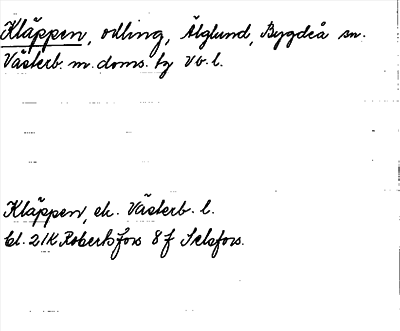 Kläppen, odling, Älglund, Bygdeå sn.
Västerb. m. doms. tg Vb. l.
Kläppen, ek. Västerb. l.
bl. 21K Robertsfors 8f Selsfors.